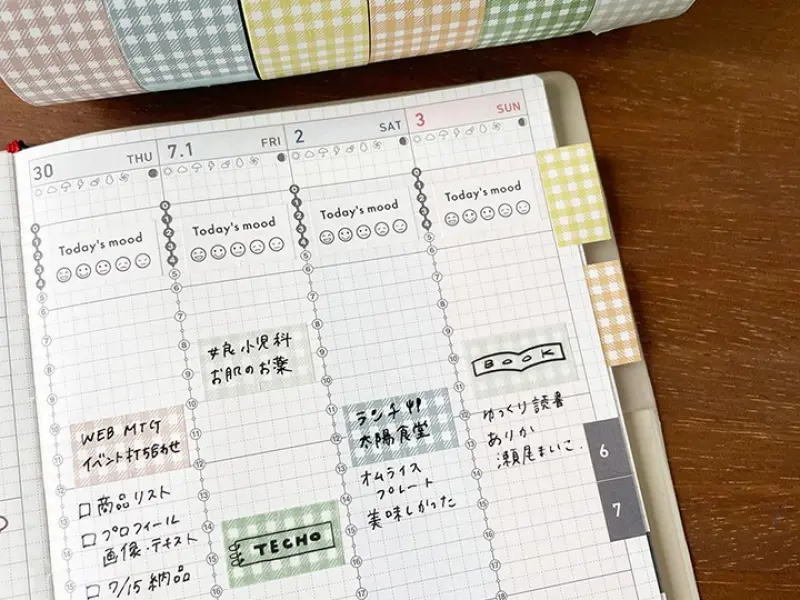 30 THU
7.1 FRI
2 SAT
3 SUN
Today's mood
Today's mood
Today's mood
Today's mood
WEB MTG
イベント打ち合わせ
□ 商品リスト
□ プロフィール
画像・テキスト
□ 7/15 納品
娘 小児科
お肌のお薬
TECHO
ランチ
太陽食堂
オムライス
プレート
美味しかった
BOOK
ゆっくり読書
ありか
瀬尾まいこ.
6
7